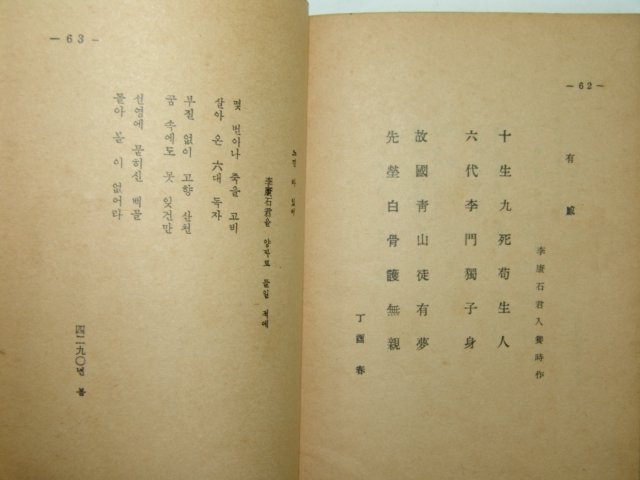 — 62 —
有感
李康石君入養時作
十生九死苟生人
六代李門獨子身
故國靑山徒有夢
先塋白骨護無親
丁酉春
— 63 —
느낀 바 있어
李康石君을 양자로 들일 적에
몇 번이나 죽을 고비
살아 온 六대 독자
부질 없이 고향 산천
꿈 속에도 못 잊건만
선영에 묻히신 백골
돌아 볼 이 없어라
四二九〇년 봄